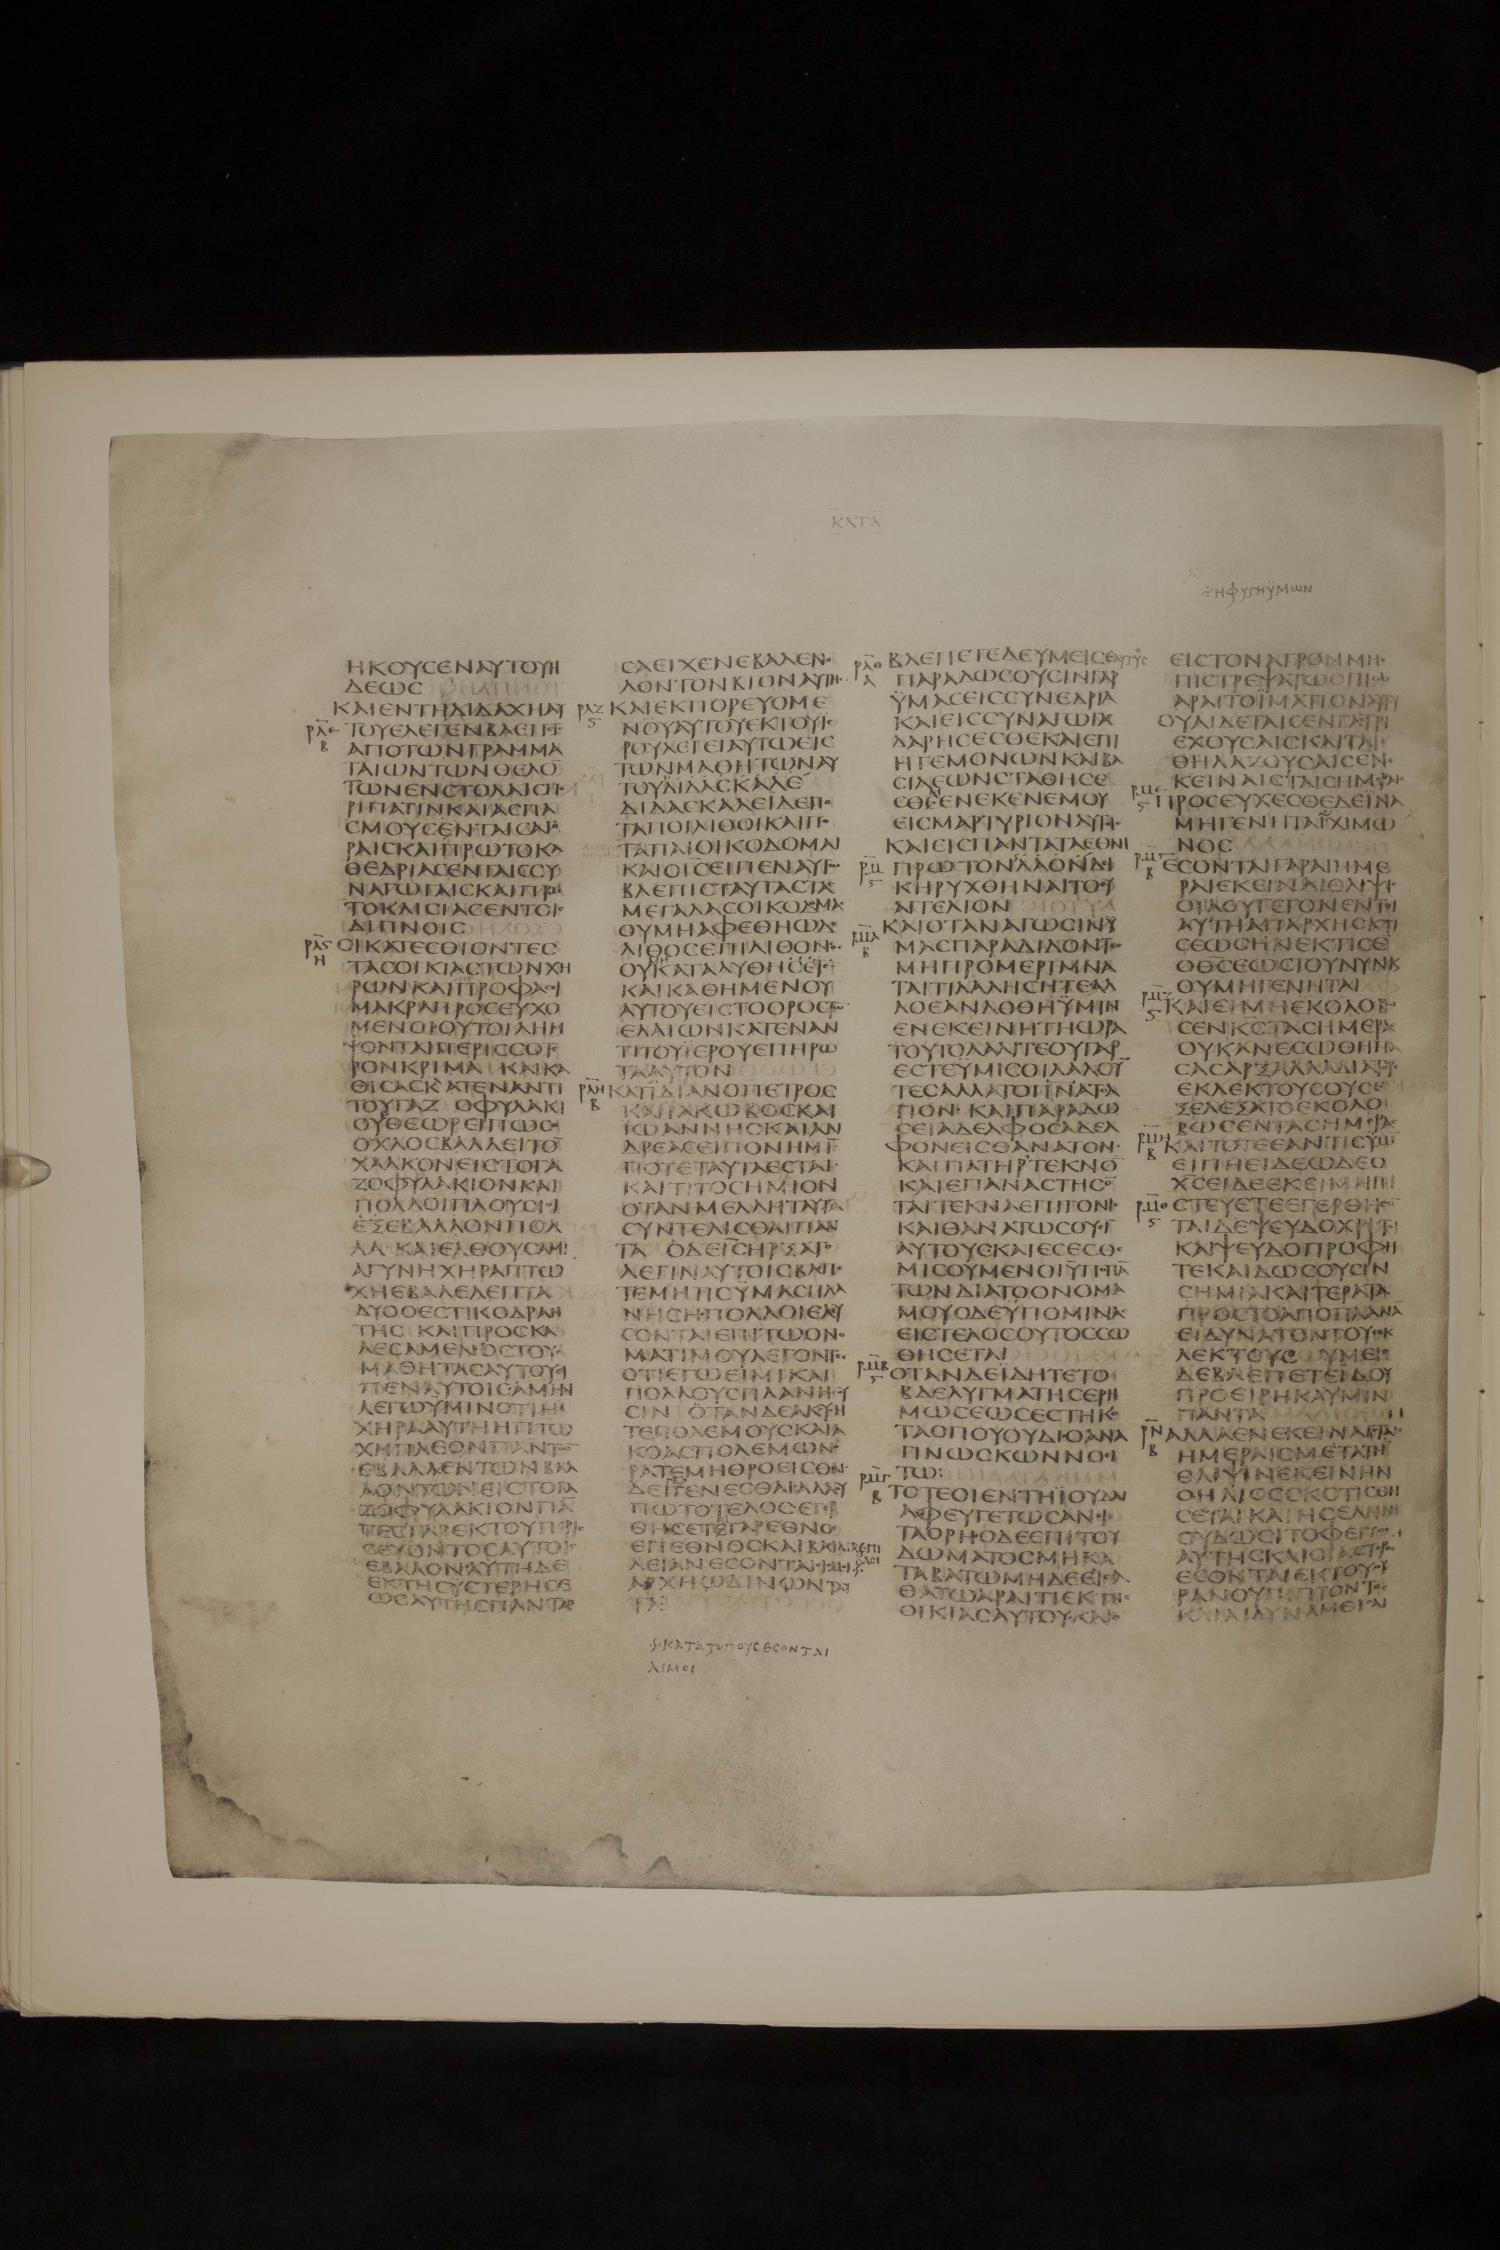 ΚΑΤΑ
Η ΦΥΓΗ ΫΜΩΝ
ΗΚΟΥΣΕΝΑΥΤΟΥΗ
ΔΕΩΣ
ΚΑΙΕΝΤΗΔΙΔΑΧΗΑΥ
ΤΟΥΕΛΕΓΕΝΒΛΕΠΕΤΕ
ΑΠΟΤΩΝΓΡΑΜΜΑ
ΤΑΙΩΝΤΩΝΘΕΛΟ
ΤΩΝΕΝΣΤΟΛΑΙΣΠΕ
ΡΙΠΑΤΙΝΚΑΙΑΣΠΑ
ΣΜΟΥΣΕΝΤΑΙΣΑΓΟ
ΡΑΙΣΚΑΙΠΡΩΤΟΚΑ
ΘΕΔΡΙΑΣΕΝΤΑΙΣΣΥ
ΝΑΓΩΓΑΙΣΚΑΙΠΡΩ
ΤΟΚΛΙΣΙΑΣΕΝΤΟΙΣ
ΔΙΠΝΟΙΣ
ΟΙΚΑΤΕΣΘΙΟΝΤΕΣ
ΤΑΣΟΙΚΙΑΣΤΩΝΧΗ
ΡΩΝΚΑΙΠΡΟΦΑΣΙ
ΜΑΚΡΑΠΡΟΣΕΥΧΟ
ΜΕΝΟΙΟΥΤΟΙΛΗΜ
ΨΟΝΤΑΙΠΕΡΙΣΣΟΤΕ
ΡΟΝΚΡΙΜΑ ΚΑΙΚΑ
ΘΙΣΑΣΚΑΤΕΝΑΝΤΙ
ΤΟΥΓΑΖΟΦΥΛΑΚΙ
ΟΥΘΕΩΡΕΙΠΩΣΟ
ΟΧΛΟΣΒΑΛΛΕΙΤΟ
ΧΑΛΚΟΝΕΙΣΤΟΓΑ
ΖΟΦΥΛΑΚΙΟΝΚΑΙ
ΠΟΛΛΟΙΠΛΟΥΣΙΟΙ
ΕΞΕΒΑΛΛΟΝΠΟΛ
ΛΑ ΚΑΙΕΛΘΟΥΣΑΜΙ
ΑΓΥΝΗΧΗΡΑΠΤΩ
ΧΗΕΒΑΛΕΛΕΠΤΑ
ΔΥΟΟΕΣΤΙΚΟΔΡΑΝ
ΤΗΣ ΚΑΙΠΡΟΣΚΑ
ΛΕΣΑΜΕΝΟΣΤΟΥΣ
ΜΑΘΗΤΑΣΑΥΤΟΥΕΙ
ΠΕΝΑΥΤΟΙΣΑΜΗΝ
ΛΕΓΩΫΜΙΝΟΤΙΗ
ΧΗΡΑΑΥΤΗΗΠΤΩ
ΧΗΠΛΕΟΝΠΑΝΤΩ
ΕΒΑΛΛΕΝΤΩΝΒΑΛ
ΛΟΝΤΩΝΕΙΣΤΟΓΑ
ΖΟΦΥΛΑΚΙΟΝΠΑ
ΤΕΣΓΑΡΕΚΤΟΥΠΕΡΙΣ
ΣΕΥΟΝΤΟΣΑΥΤΟΙΣ
ΕΒΑΛΟΝΑΥΤΗΔΕ
ΕΚΤΗΣΥΣΤΕΡΗΣΕ
ΩΣΑΥΤΗΣΠΑΝΤΑΟ
ΣΑΕΙΧΕΝΕΒΑΛΕΝΟ
ΛΟΝΤΟΝΒΙΟΝΑΥΤΗΣ
ΚΑΙΕΚΠΟΡΕΥΟΜΕ
ΝΟΥΑΥΤΟΥΕΚΤΟΥΙΕ
ΡΟΥΛΕΓΕΙΑΥΤΩΕΙΣ
ΤΩΝΜΑΘΗΤΩΝΑΥ
ΤΟΥΔΙΔΑΣΚΑΛΕ
ΔΙΔΑΣΚΑΛΕΙΔΕΠΟ
ΤΑΠΟΙΛΙΘΟΙΚΑΙΠΟ
ΤΑΠΑΙΟΙΚΟΔΟΜΑΙ
ΚΑΙΟΙΣΕΙΠΕΝΑΥΤΩ
ΒΛΕΠΙΣΤΑΥΤΑΣΤΑΣ
ΜΕΓΑΛΑΣΟΙΚΟΔΟΜΑΣ
ΟΥΜΗΑΦΕΘΗΩΔΕ
ΛΙΘΟΣΕΠΙΛΙΘΟΝΟΣ
ΟΥΚΑΤΑΛΥΘΗΣΕΤΑΙ
ΚΑΙΚΑΘΗΜΕΝΟΥ
ΑΥΤΟΥΕΙΣΤΟΟΡΟΣΤΩ
ΕΛΑΙΩΝΚΑΤΕΝΑΝ
ΤΙΤΟΥΪΕΡΟΥΕΠΗΡΩ
ΤΑΑΥΤΟΝ
ΚΑΤΪΔΙΑΝΟΠΕΤΡΟΣ
ΚΑΙΪΑΚΩΒΟΣΚΑΙ
ΪΩΑΝΝΗΣΚΑΙΑΝ
ΔΡΕΑΣΕΙΠΟΝΗΜΙ
ΠΟΤΕΤΑΥΤΑΕΣΤΑΙ
ΚΑΙΤΙΤΟΣΗΜΙΟΝ
ΟΤΑΝΜΕΛΛΗΤΑΥΤΑ
ΣΥΝΤΕΛΙΣΘΑΙΠΑΝ
ΤΑ ΟΔΕΙΣΗΡΞΑΤΟ
ΛΕΓΙΝΑΥΤΟΙΣΒΛΕΠΕ
ΤΕΜΗΤΙΣΫΜΑΣΠΛΑ
ΝΗΣΗΠΟΛΛΟΙΕΛΕΥ
ΣΟΝΤΑΙΕΠΙΤΩΟΝΟ
ΜΑΤΙΜΟΥΛΕΓΟΝΤΕΣ
ΟΤΙΕΓΩΕΙΜΙΚΑΙ
ΠΟΛΛΟΥΣΠΛΑΝΗΣΟΥ
ΣΙΝ ΟΤΑΝΔΕΑΚΟΥΗ
ΤΕΠΟΛΕΜΟΥΣΚΑΙΑ
ΚΟΑΣΠΟΛΕΜΩΝΟ
ΡΑΤΕΜΗΘΡΟΕΙΣΘΑΙ
ΔΕΙΓΕΝΕΣΘΑΙΑΛΛΟΥ
ΠΩΤΟΤΕΛΟΣΕΓΕΡ
ΘΗΣΕΤΕΓΑΡΕΘΝΟΣ
ΕΠΕΘΝΟΣΚΑΙΒΑΣΙΛΙΑΕΠΙ
ΛΕΙΑΝΕΣΟΝΤΑΙ
ΑΡΧΗΩΔΙΝΩΝΤΑΥ
ΤΑ
ΚΑΤΑ ΤΟΠΟΥΣ ΕΣΟΝΤΑΙ
ΛΙΜΟΙ
ΒΛΕΠΕΤΕΔΕΥΜΕΙΣΕΑΥΤΟΥΣ
ΠΑΡΑΔΩΣΟΥΣΙΝΓΑΡ
ΫΜΑΣΕΙΣΣΥΝΕΔΡΙΑ
ΚΑΙΕΙΣΣΥΝΑΓΩΓΑΣ
ΔΑΡΗΣΕΣΘΕΚΑΙΕΠΙ
ΗΓΕΜΟΝΩΝΚΑΙΒΑ
ΣΙΛΕΩΝΣΤΑΘΗΣΕ
ΣΘΕΕΝΕΚΕΝΕΜΟΥ
ΕΙΣΜΑΡΤΥΡΙΟΝΑΥΤΟΙΣ
ΚΑΙΕΙΣΠΑΝΤΑΤΑΕΘΝΗ
ΠΡΩΤΟΝΛΑΟΝΔΕΙ
ΚΗΡΥΧΘΗΝΑΙΤΟΕΥ
ΑΓΓΕΛΙΟΝ
ΚΑΙΟΤΑΝΑΓΩΣΙΝΫ
ΜΑΣΠΑΡΑΔΙΔΟΝΤΕΣ
ΜΗΠΡΟΜΕΡΙΜΝΑ
ΤΑΙΤΙΛΑΛΗΣΗΤΕΑΛ
ΛΟΕΑΝΔΟΘΗΫΜΙΝ
ΕΝΕΚΕΙΝΗΤΗΩΡΑ
ΤΟΥΤΟΛΑΛΙΤΕΟΥΓΑΡ
ΕΣΤΕΫΜΙΣΟΙΛΑΛΟΥ
ΤΕΣΑΛΛΑΤΟΠΝΑΤΟΑ
ΓΙΟΝ ΚΑΙΠΑΡΑΔΩ
ΣΕΙΑΔΕΛΦΟΣΑΔΕΛ
ΦΟΝΕΙΣΘΑΝΑΤΟΝ
ΚΑΙΠΑΤΗΡΤΕΚΝΟ
ΚΑΙΕΠΑΝΑΣΤΗΣΟ
ΤΑΙΤΕΚΝΑΕΠΙΓΟΝΙΣ
ΚΑΙΘΑΝΑΤΩΣΟΥΣΙ
ΑΥΤΟΥΣΚΑΙΕΣΕΣΘΕ
ΜΙΣΟΥΜΕΝΟΙΫΠΟΠΑ
ΤΩΝΔΙΑΤΟΟΝΟΜΑ
ΜΟΥΟΔΕΫΠΟΜΙΝΑΣ
ΕΙΣΤΕΛΟΣΟΥΤΟΣΣΩ
ΘΗΣΕΤΑΙ
ΟΤΑΝΔΕΪΔΗΤΕΤΟ
ΒΔΕΛΥΓΜΑΤΗΣΕΡΗ
ΜΩΣΕΩΣΕΣΤΗΚΟ
ΤΑΟΠΟΥΟΥΔΙΟΑΝΑ
ΓΙΝΩΣΚΩΝΝΟΕΙ
ΤΩ
ΤΟΤΕΟΙΕΝΤΗΪΟΥΔΑΙ
ΑΦΕΥΓΕΤΩΣΑΝΕΙΣ
ΤΑΟΡΗΟΔΕΕΠΙΤΟΥ
ΔΩΜΑΤΟΣΜΗΚΑ
ΤΑΒΑΤΩΜΗΔΕΕΙΣΕΛ
ΘΑΤΩΑΡΑΙΤΙΕΚΤΗΣ
ΟΙΚΙΑΣΑΥΤΟΥΚΑΙΟ
ΕΙΣΤΟΝΑΓΡΟΝΜΗΕ
ΠΙΣΤΡΕΨΑΤΩΟΠΙΣΩ
ΑΡΑΙΤΟΪΜΑΤΙΟΝΑΥΤΟΥ
ΟΥΑΙΔΕΤΑΙΣΕΝΓΑΣΤΡΙ
ΕΧΟΥΣΑΙΣΚΑΙΤΑΙΣ
ΘΗΛΑΖΟΥΣΑΙΣΕΝΕ
ΚΕΙΝΑΙΣΤΑΙΣΗΜΕΡΑΙΣ
ΠΡΟΣΕΥΧΕΣΘΕΔΕΪΝΑ
ΜΗΓΕΝΗΤΑΙΧΙΜΩ
ΝΟΣ
ΕΣΟΝΤΑΙΓΑΡΑΙΗΜΕ
ΡΑΙΕΚΕΙΝΑΙΘΛΙΨΙΣ
ΟΙΑΟΥΓΕΓΟΝΕΝΤΟΙ
ΑΥΤΗΑΠΑΡΧΗΣΚΤΙ
ΣΕΩΣΗΝΕΚΤΙΣΕ
ΟΘΣΕΩΣΤΟΥΝΥΝΚΑΙ
ΟΥΜΗΓΕΝΗΤΑΙ
ΚΑΙΕΙΜΗΕΚΟΛΟΒΩ
ΣΕΝΚΣΤΑΣΗΜΕΡΑΣ
ΟΥΚΑΝΕΣΩΘΗΠΑ
ΣΑΣΑΡΞΑΛΛΑΔΙΑΤΟΥΣ
ΕΚΛΕΚΤΟΥΣΟΥΣΕ
ΞΕΛΕΞΑΤΟΕΚΟΛΟ
ΒΩΣΕΝΤΑΣΗΜΕΡΑΣ
ΚΑΙΤΟΤΕΕΑΝΤΙΣΫΜΙ
ΕΙΠΗΕΙΔΕΩΔΕΟ
ΧΣΕΙΔΕΕΚΕΙΜΗΠΙ
ΣΤΕΥΕΤΕΕΓΕΡΘΗΣΟ
ΤΑΙΔΕΨΕΥΔΟΧΡΙΣΤΟΙ
ΚΑΙΨΕΥΔΟΠΡΟΦΗ
ΤΕΚΑΙΔΩΣΟΥΣΙΝ
ΣΗΜΙΑΚΑΙΤΕΡΑΤΑ
ΠΡΟΣΤΟΑΠΟΠΛΑΝΑ
ΕΙΔΥΝΑΤΟΝΤΟΥΣΕΚ
ΛΕΚΤΟΥΣ ΥΜΕΙΣ
ΔΕΒΛΕΠΕΤΕΪΔΟΥ
ΠΡΟΕΙΡΗΚΑΥΜΙΝ
ΠΑΝΤΑ
ΑΛΛΑΕΝΕΚΕΙΝΑΙΣΤΑΙΣ
ΗΜΕΡΑΙΣΜΕΤΑΤΗ
ΘΛΙΨΙΝΕΚΕΙΝΗΝ
ΟΗΛΙΟΣΣΚΟΤΙΣΘΗ
ΣΕΤΑΙΚΑΙΗΣΕΛΗΝΗ
ΟΥΔΩΣΙΤΟΦΕΓΓΟΣ
ΑΥΤΗΣΚΑΙΟΙΑΣΤΕΡΕΣ
ΕΣΟΝΤΑΙΕΚΤΟΥΟΥ
ΡΑΝΟΥΠΙΠΤΟΝΤΕΣ
ΚΑΙΑΙΔΥΝΑΜΕΙΣΑΙ